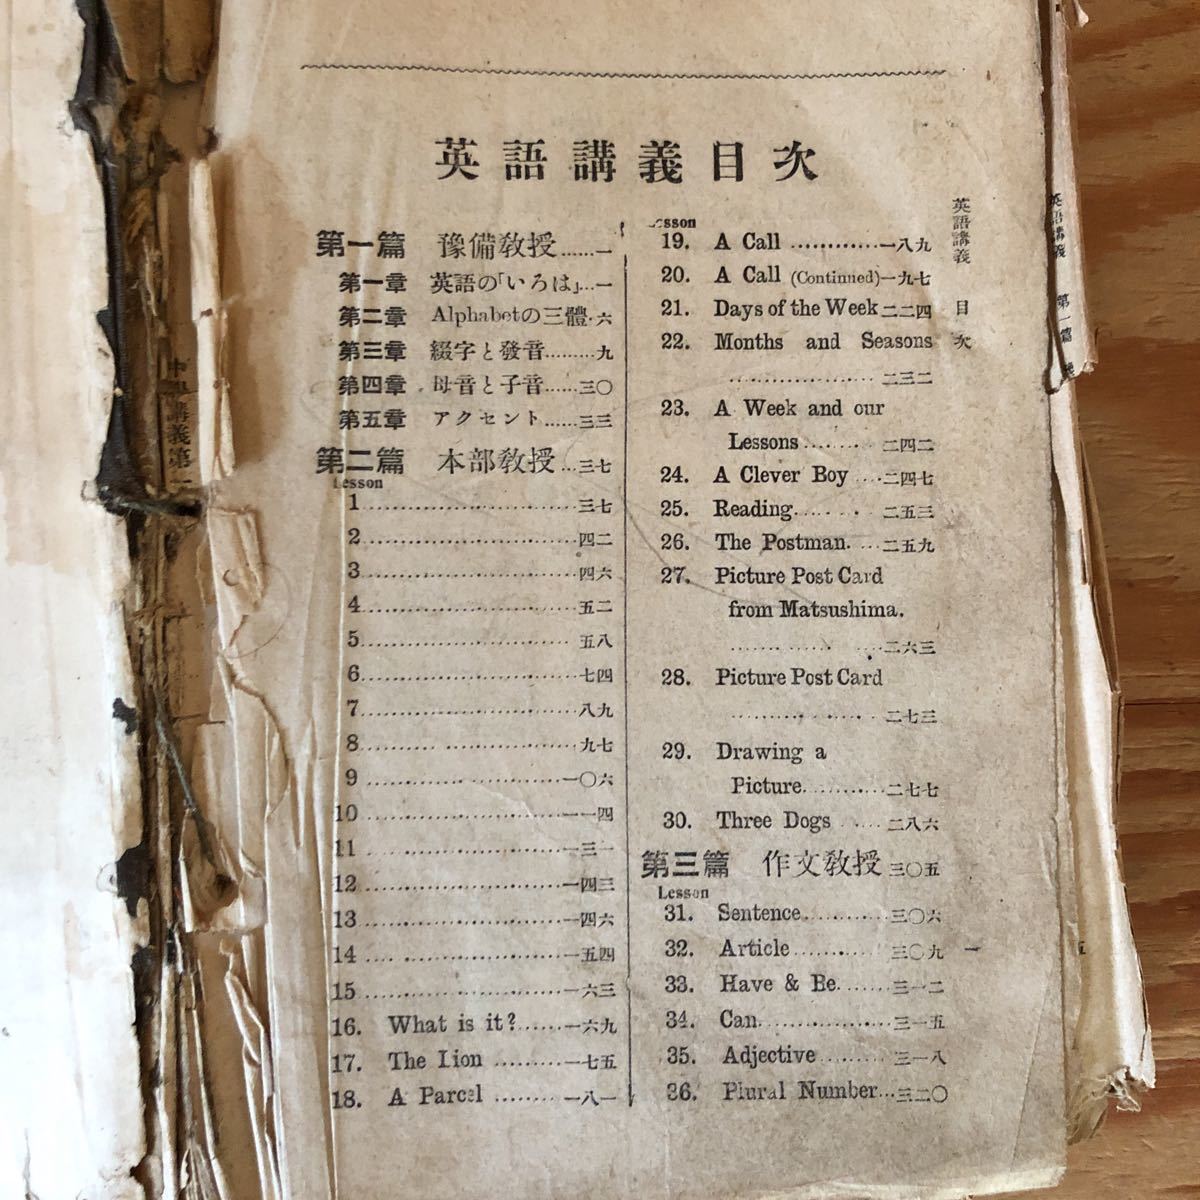 英語講義目次
第一篇 豫備教授……一
第一章 英語の「いろは」…一
第二章 Alphabetの三體・六
第三章 綴字と發音………九
第四章 母音と子音……三〇
第五章 アクセント……三三
第二篇 本部教授…三七
Lesson
1……………………三七
2……………………四二
3……………………四六
4……………………五二
5……………………五八
6……………………七四
7……………………八九
8……………………九七
9……………………一〇六
10……………………一一四
11……………………一三一
12……………………一四三
13……………………一四六
14……………………一五四
15……………………一六三
16. What is it?……一六九
17. The Lion ………一七五
18. A Parcel ………一八一
Lesson
19. A Call …………一八九
20. A Call (Continued)一九七
21. Days of the Week二二四
22. Months and Seasons
……………………二三二
23. A Week and our
Lessons………二四二
24. A Clever Boy …二四七
25. Reading………二五三
26. The Postman. …二五九
27. Picture Post Card
from Matsushima.
……………………二六三
28. Picture Post Card
……………………二七三
29. Drawing a
Picture…………二七七
30. Three Dogs ……二八六
第三篇 作文教授三〇五
Lesson
31. Sentence…………三〇六
32. Article…………三〇九
33. Have & Be………三一二
34. Can………………三一五
35. Adjective………三一八
36. Plural Number…三二〇
英語講義 目次
一
英語講義 第一篇
講義第一